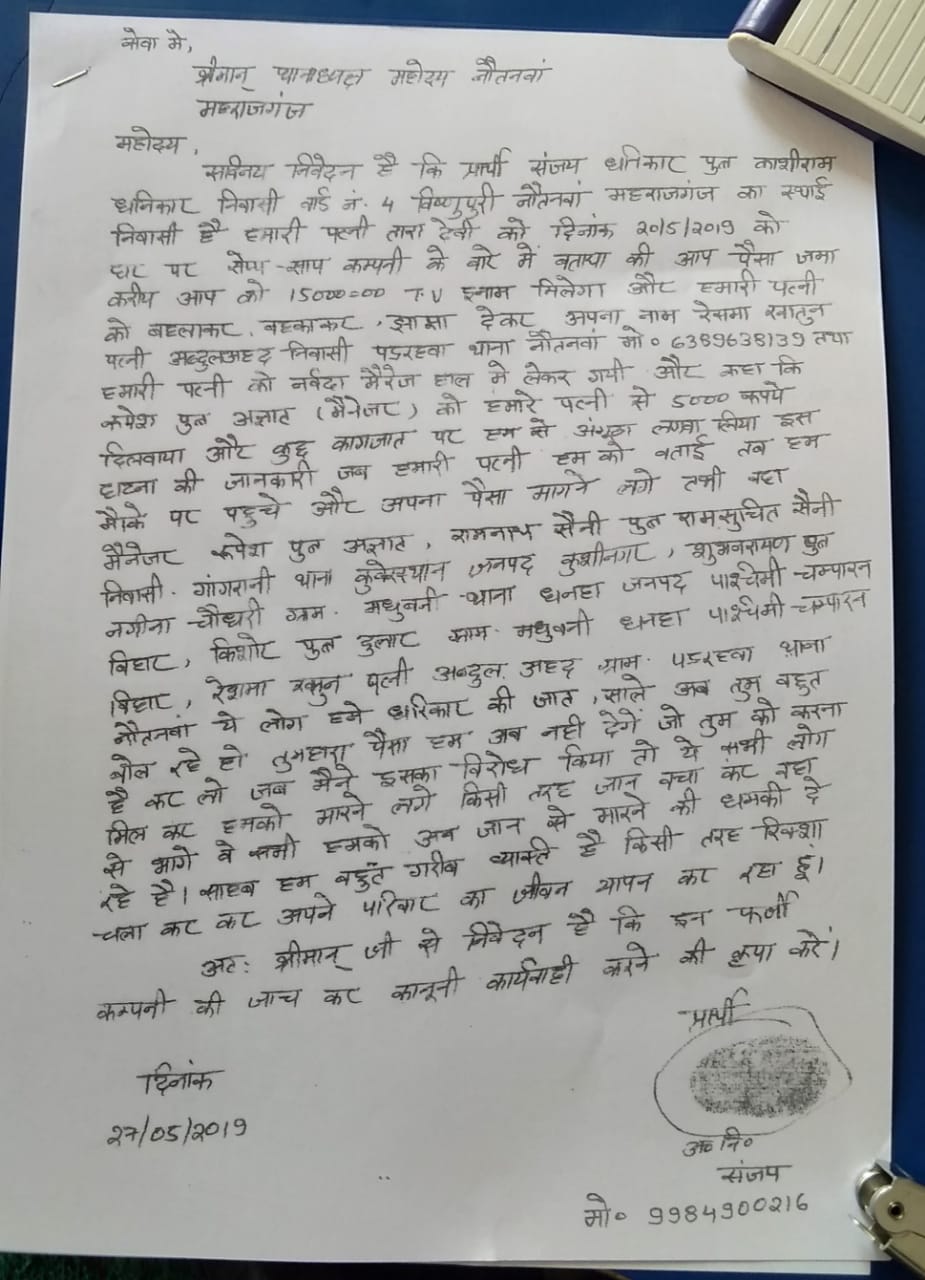 सेवा मे,
श्रीमान् थानाध्यक्ष महोदय नौतनवां
महराजगंज
महोदय,
सविनय निवेदन है कि प्रार्थी संजय धरिकार पुत्र काशीराम
धरिकार निवासी वार्ड नं. 4 विष्णुपुरी नौतनवां महराजगंज का स्थाई
निवासी है हमारी पत्नी तारा देवी को दिनांक 20/5/2019 को
घर पर सेफ-साप कम्पनी के बारे में बताया की आप पैसा जमा
करीये आप को 15000=00 T.V इनाम मिलेगा और हमारी पत्नी
को बहलाकर, बहकाकर, झासा देकर अपना नाम रेसमा खातुन
पत्नी अब्दुलअहद निवासी पडरहवा थाना नौतनवां मो० 6389638139 तथा
हमारी पत्नी को नर्वदा मैरेज हाल मे लेकर गयी और कहा कि
रूपेश पुत्र अज्ञात (मैनेजर) को हमारे पत्नी से 5000 रूपये
दिलवाया और कुछ कागजात पर हम से अंगूठा लगवा लिया इस
घटना की जानकारी जब हमारी पत्नी हम को बताई तब हम
मौके पर पहुचे और अपना पैसा मागने लगे तभी वहा
मैनेजर रूपेश पुत्र अज्ञात, रामनाथ सैनी पुत्र रामसुचित सैनी
निवासी. गांगरानी थाना कुबेरस्थान जनपद कुशीनगर, शुभनरायण पुत्र
नगीना चौधरी ग्राम. मधुवनी थाना धनहा जनपद पाश्चिमी चम्पारन
बिहार, किशोर पुत्र दुलार ग्राम. मधुवनी धनहा पाश्चिमी चम्पारन
बिहार, रेशमा पत्नी अब्दुल. अहद ग्राम. पडरहवा थाना
नौतनवां ये लोग हमे धरिकार की जात, साले अब तुम बहुत
बोल रहे हो तुम्हारा पैसा हम अब नही देगें जो तुम को करना
है कर लो जब मैने इसका विरोध किया तो ये सभी लोग
मिल कर हमको मारने लगे किसी तरह जान बचा कर वहा
से भागे वे सभी हमको अब जान से मारने की धमकी दे
रहे है। साहब हम बहुत गरीब व्यक्ति है किसी तरह रिक्शा
चला कर कर अपने परिवार का जीवन यापन कर रहा हूं।
अतः श्रीमान् जी से निवेदन है कि इन फर्जी
कम्पनी की जाच कर कानूनी कार्यवाही करने की कृपा करें।
प्रार्थी
दिनांक
27/05/2019
अ० नि०
संजय
मो० 9984900216